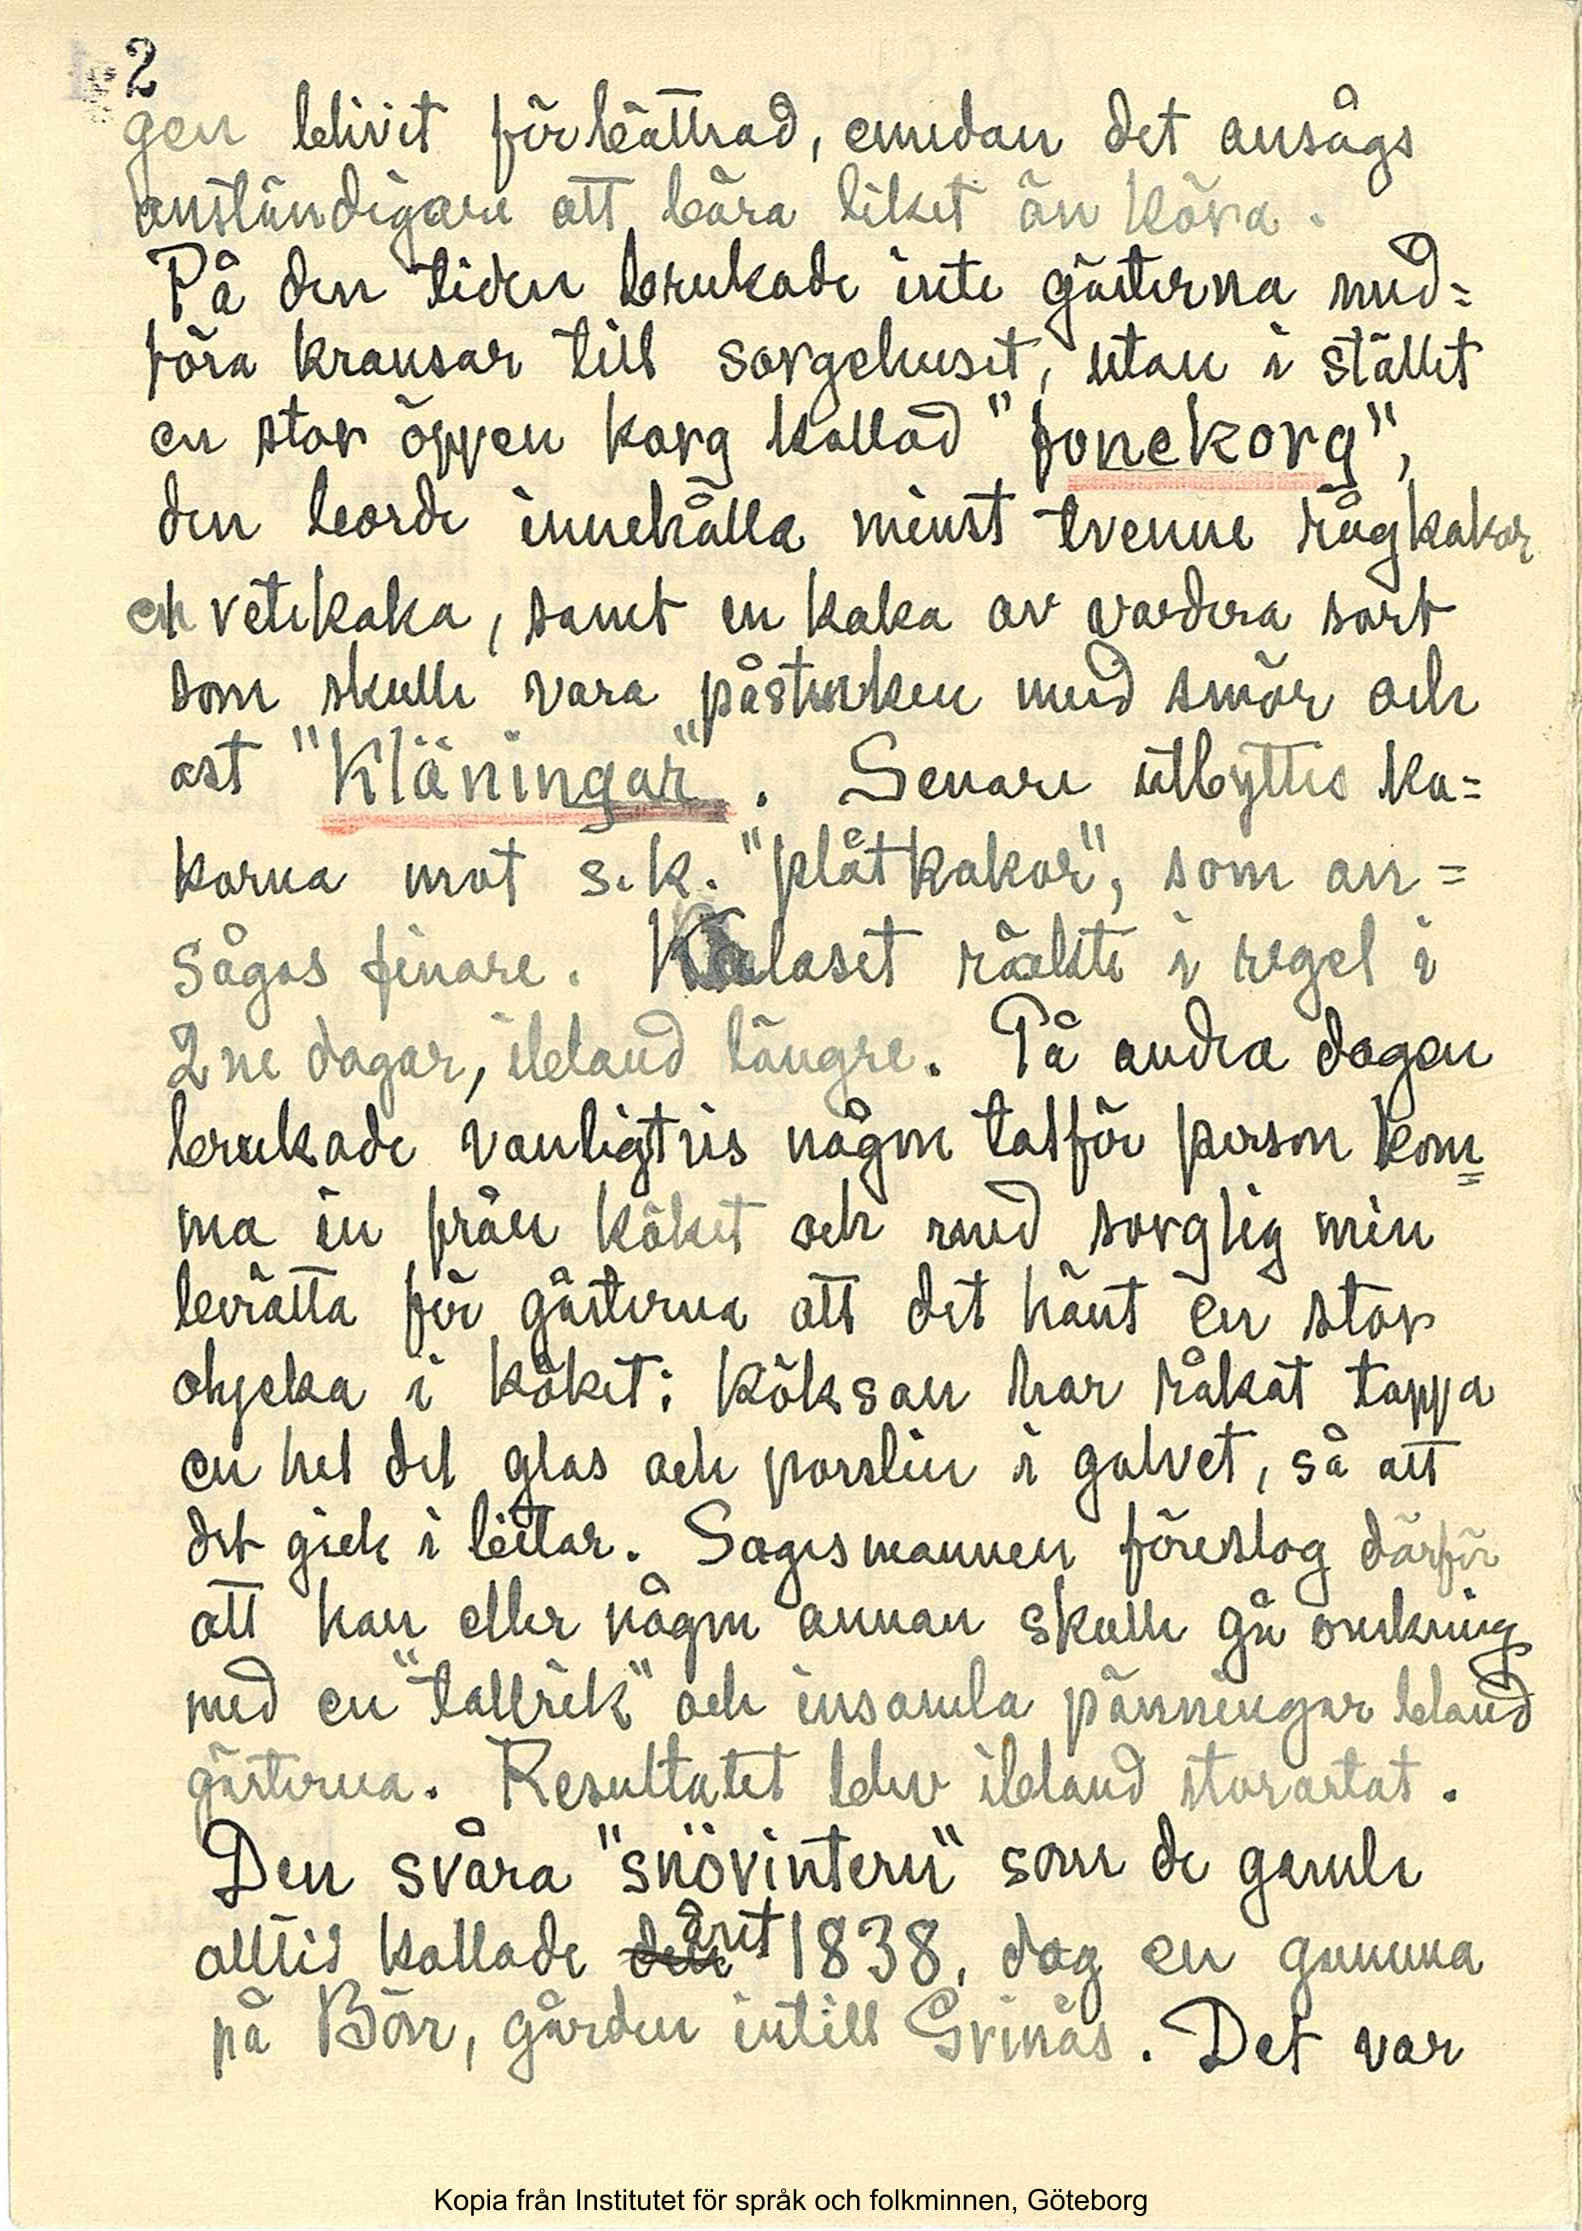 2
gen blivit förbättrad, emedan det ansågs
anständigare att bära liket än köra.
På den tiden brukade inte gästerna med=
föra kransar till sorgehuset, utan i stället
en stor öppen korg kallad "fonekorg",
den borde innehålla minst tvenne rågkakor
och vetekaka, samt en kaka av vardera sort
som skulle vara påstruken med smör och
ost "Kläningar". Senare utbyttes ka=
korna mot s.k. "plåtkakor", som an=
sågos finare. Kalaset räckte i regel i
2ne dagar, ibland längre. På andra dagen
brukade vanligtvis någon talför person kom=
ma in från köket och med sorglig min
berätta för gästerna att det hänt en stor
olycka i köket: köksan har råkat tappa
en hel del glas och porslin i golvet, så att
det gick i bitar. Sagesmannen föreslog därför
att han eller någon annan skulle gå omkring
med en "tallrik" och insamla pänningar bland
gästerna. Resultatet blev ibland storartat.
Den svåra "snövintern" som de gamle
alltid kallade den året 1838, dog en gumma
på Börr, gården intill Grinås. Det var
Kopia från Institutet för språk och folkminnen, Göteborg